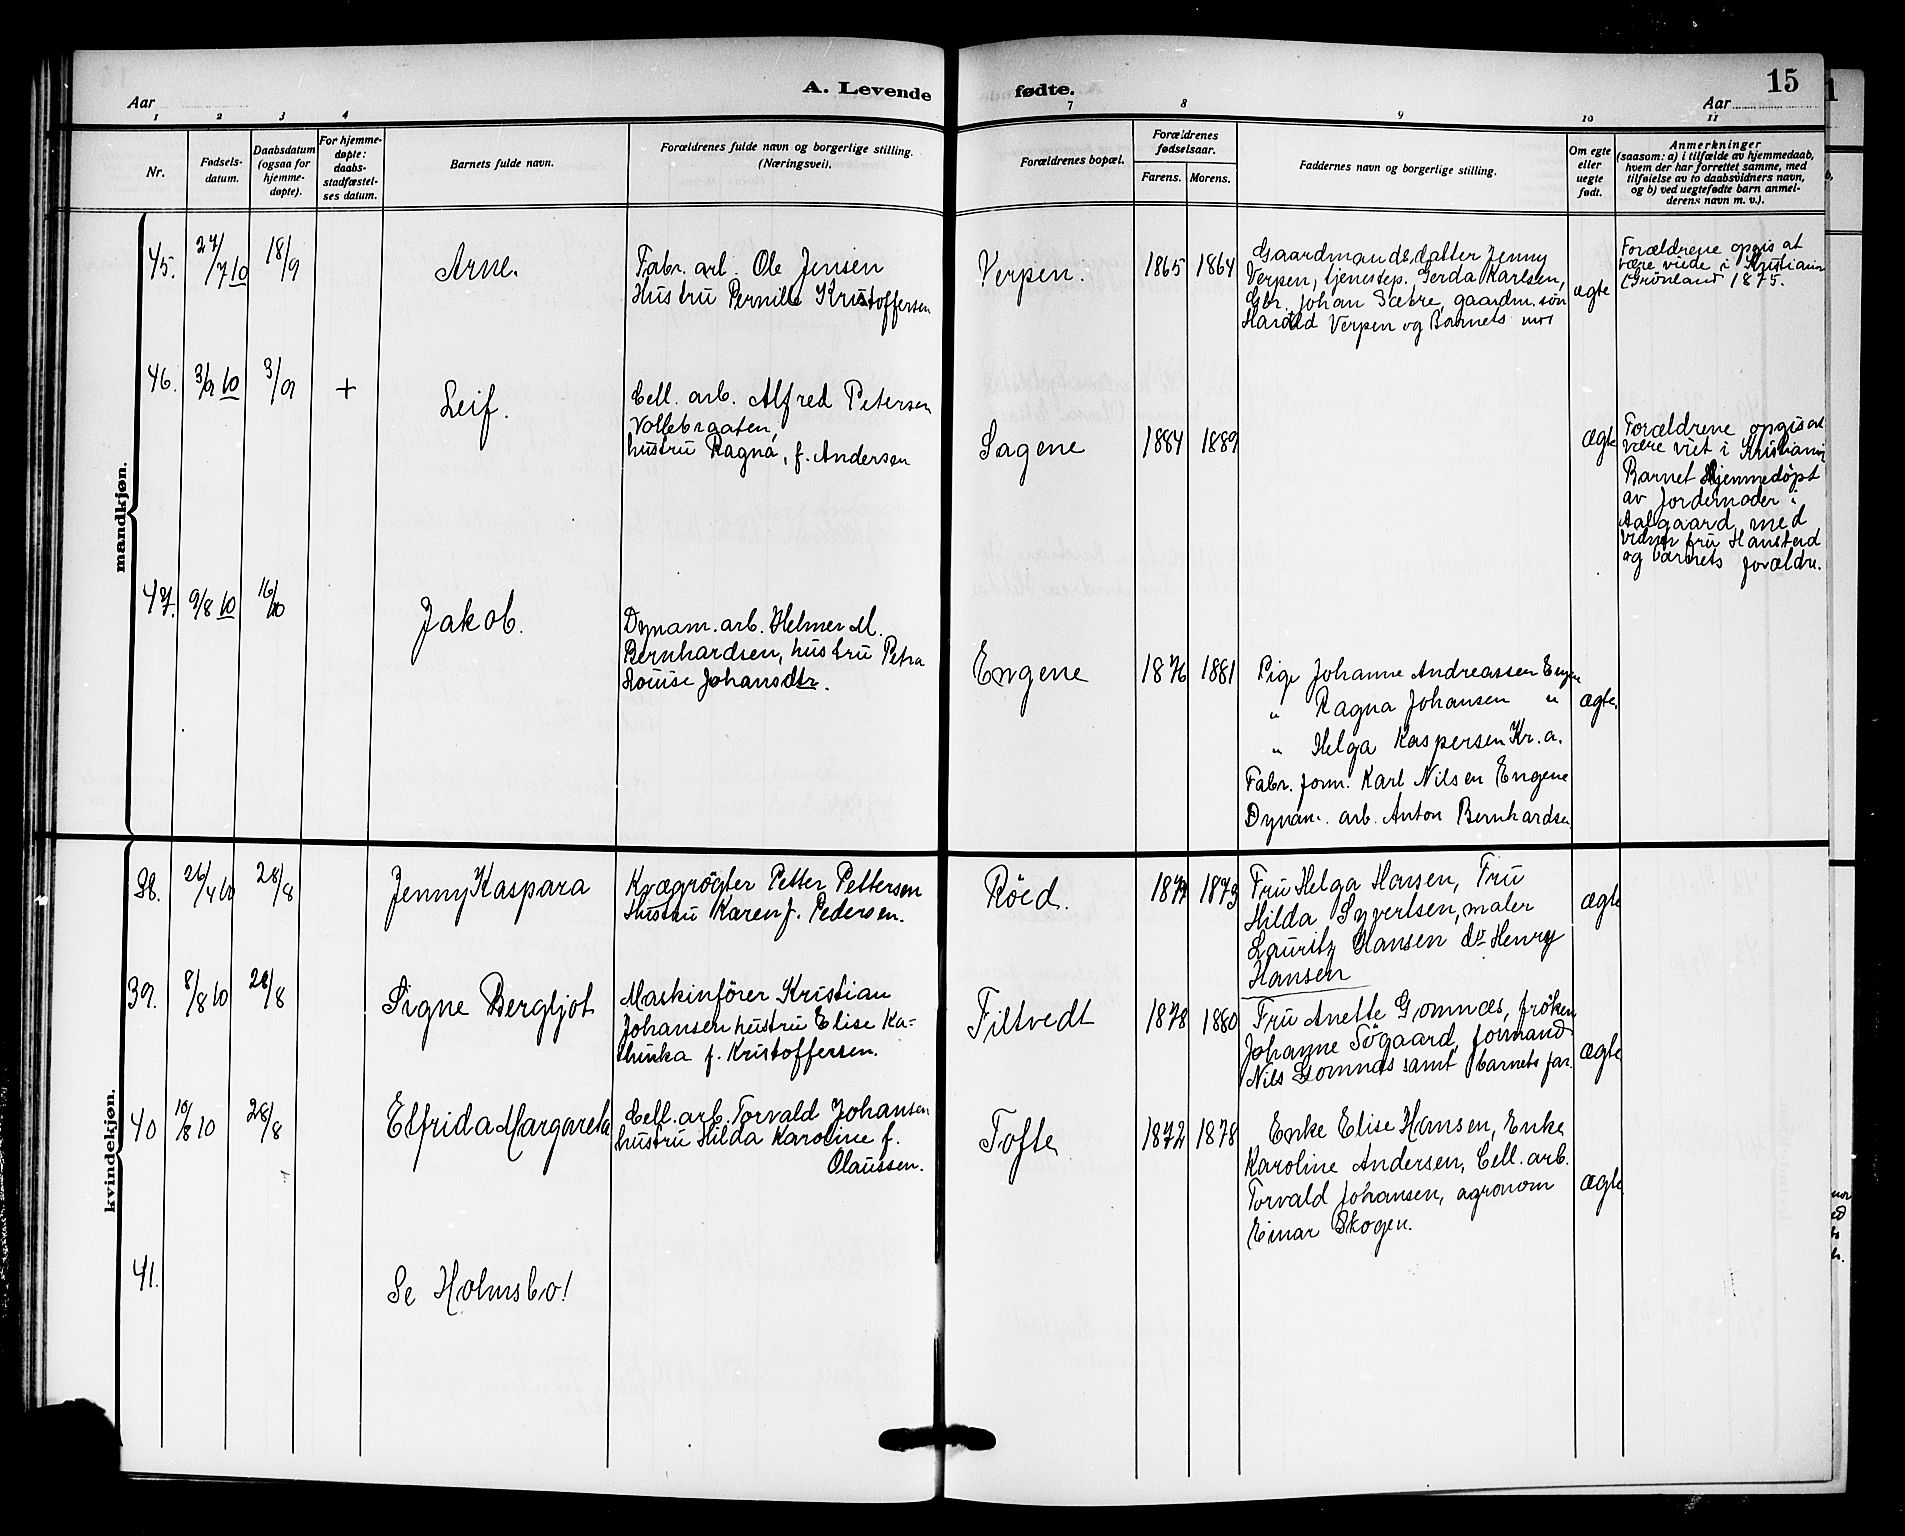 A. Levende
fødte.
15
Aar
Aar
1 2 3 4
7 8 9 10 11
Nr.
Fødsels-
datum.
Daabsdatum
(ogsaa for
hjemme-
døpte).
For hjemme-
døpte:
daabs-
stadfæstel-
ses datum.
Barnets fulde navn.
Forældrenes fulde navn og borgerlige stilling.
(Næringsvei).
Forældrenes bopæl.
Forældrenes
fødselsaar.
Farens.
Morens.
Faddernes navn og borgerlige stilling.
Om egte
eller
uegte
født.
Anmerkninger
(saasom: a) i tilfælde av hjemmedaab,
hvem der har forrettet samme, med
tilføielse av to daabsvidners navn,
og b) ved uegtefødte barn anmel-
derens navn m. v.).
mandkjøn.
45.
27/7 10
18/9
Arne.
Fabr. arb. Ole Jensen
Hustru Pernille Kristoffersen
Verpen.
1865
1864
Gaardmandsdatter Jenny
Verpen, tjenestep. Gerda Karlsen,
Gbr. Johan Sætre, gaardm. søn
Harald Verpen og Barnets mor
ægte
Forældrene opgis at
være viede i Kristiania
(Grønland 1875.
46.
3/9 10
3/9
+
Leif.
Cell. arb. Alfred Petersen
Vollebraaten,
hustru Ragna, f. Andersen
Sagene
1884
1889
ægte
Forældrene opgis at
være viet i Kristiania
Barnet Hjemmedøpt
av Jordemoder
Aalgaard, med
vidner fru Hansteed
og barnets forældre.
47.
9/8 10
16/10
Jakob.
Dynam. arb. Helmer M.
Bernhardsen, hustru Petra
Louise Johansdtr.
Engene
1876
1881
Pige Johanne Andreassen Engene
" Ragna Johansen "
" Helga Kaspersen Kr.a.
Fabr. form. Karl Nilsen Engene
Dynam. arb. Anton Bernhardsen
ægte.
kvindekjøn.
38.
26/4 10
28/8
Jenny Kaspara
Kvægrøgter Petter Pettersen
Hustru Karen f. Pedersen.
Røed.
1873
Fru Helga Hansen, Fru
Hilda Syvertsen, maler
Lauritz Hansen do Henry
Hansen
ægte
39.
8/8 10
28/8
Signe Bergljot
Maskinfører Kristian
Johansen hustru Elise Ka-
thinka f. Kristoffersen.
Filtvedt
1878
1880
Fru Anette Gomnæs, frøken
Johanne Søgaard, formand
Nils Gomnæs samt barnets far.
ægte
40
10/8 10
28/8
Elfrida Margareta
Cell. arb. Torvald Johansen
hustru Hilda Karoline f.
Olaussen.
Tofte
1872
1878
Enke Elise Hansen, Enke
Karoline Andersen, Cell. arb.
Torvald Johansen, agronom
Einar Skogen.
ægte
41.
Se Holmsbo!